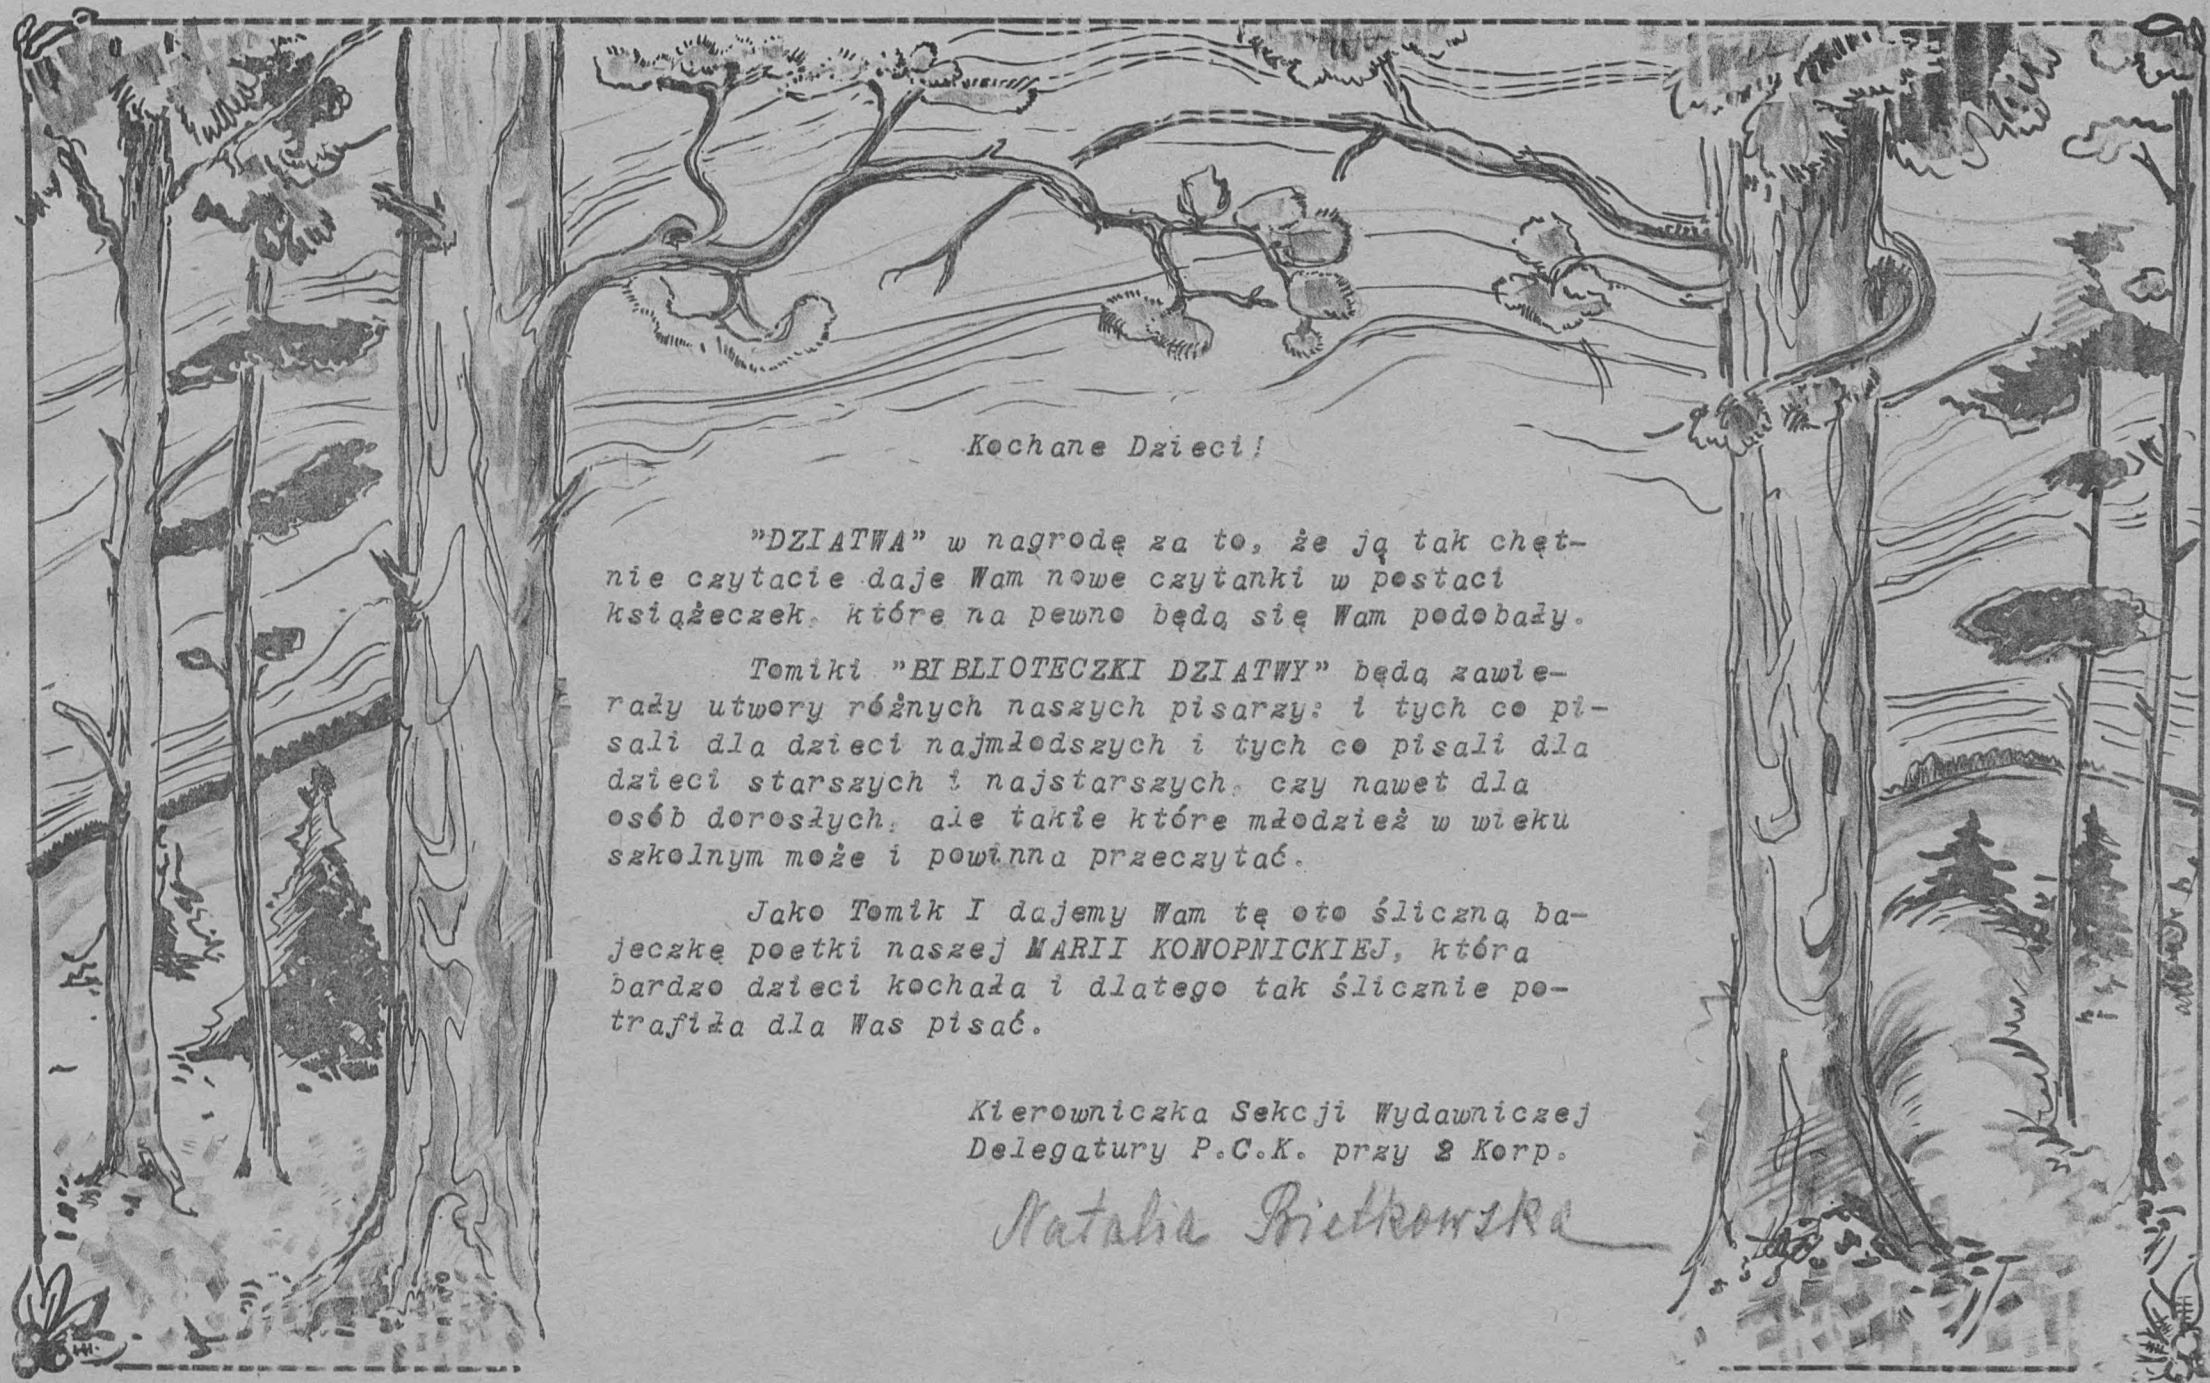 Kochane Dzieci!
"DZIATWA" w nagrodę za to, że ją tak chęt-
nie czytacie daje Wam nowe czytanki w postaci
książeczek, które na pewno będą się Wam podobały.
Tomiki "BIBLIOTECZKI DZIATWY" będą zawie-
rały utwory różnych naszych pisarzy: i tych co pi-
sali dla dzieci najmłodszych i tych co pisali dla
dzieci starszych i najstarszych, czy nawet dla
osób dorosłych, ale takie które młodzież w wieku
szkolnym może i powinna przeczytać.
Jako Tomik I dajemy Wam tę oto śliczną ba-
jeczkę poetki naszej MARII KONOPNICKIEJ, która
bardzo dzieci kochała i dlatego tak ślicznie po-
trafiła dla Was pisać.
Kierowniczka Sekcji Wydawniczej
Delegatury P.C.K. przy 2 Korp.
Natalia Bietkowska